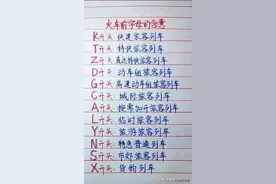 火车前字母的含意
K开头:快速旅客列车
T开头:特快旅客列车
Z开头:直达特快旅客列车
D开头:动车组旅客列车
G开头:高速动车组旅客列车
C开头:城际旅客列车
A开头:按需加开旅客列车
L开头:临时旅客列车
Y开头:旅游旅客列车
N开头:特急普通列车
S开头:市郊旅客列车
X开头:货物列车